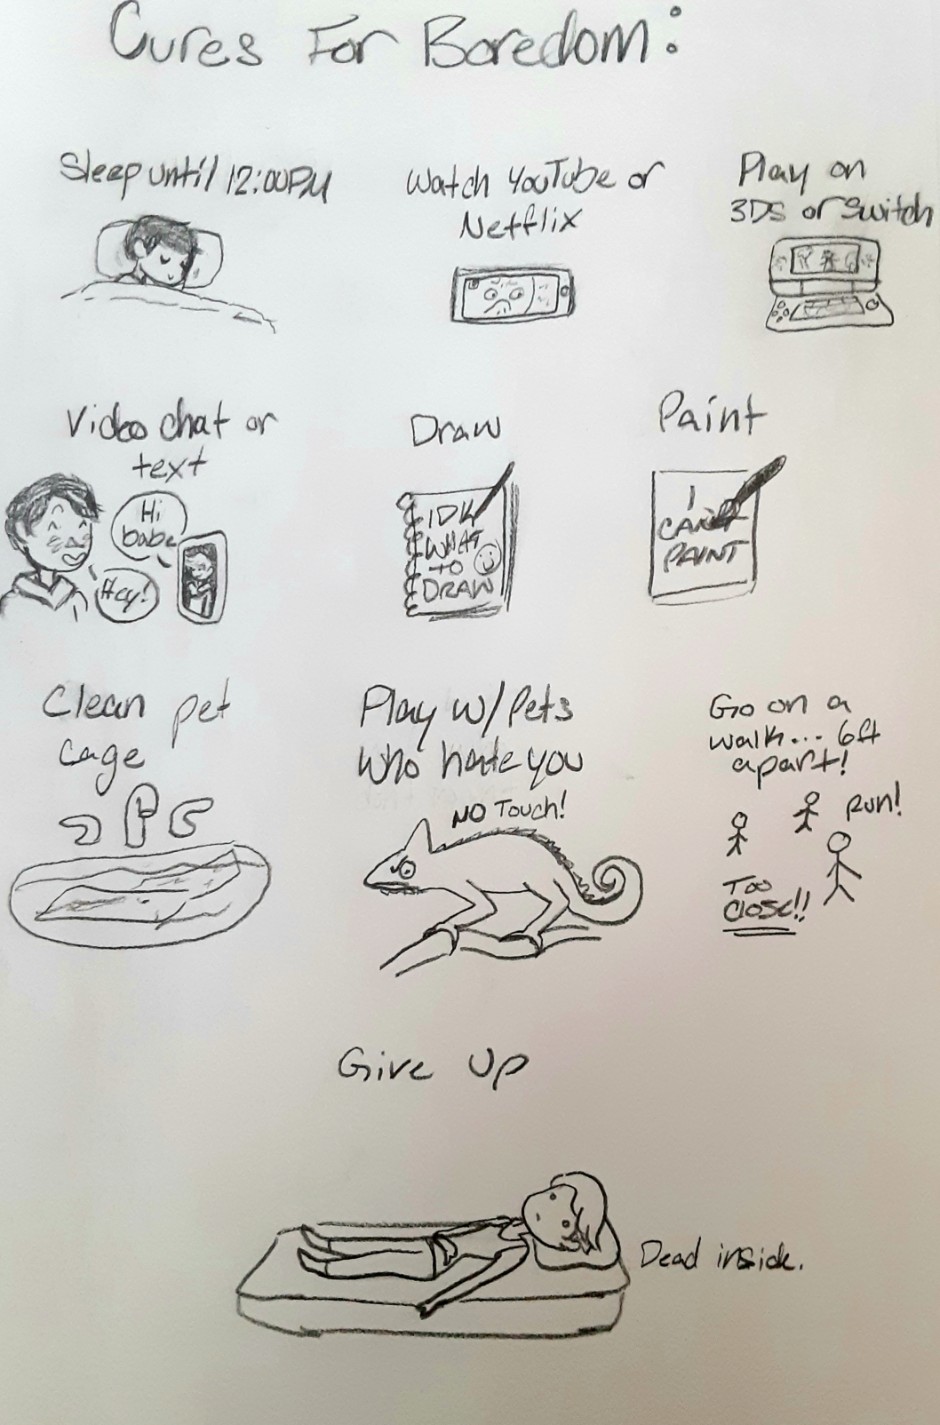 Cures For Boredom:
Sleep until 12:00PM
Watch YouTube or
Netflix
Play on
3DS or Switch
Video chat or
text
Hi
babe
Hey!
Draw
IDK
WHAT
TO
DRAW
Paint
I
CAN'T
PAINT
Clean pet
cage
Play w/Pets
who hate you
NO Touch!
Go on a
walk... 6ft
apart!
RUN!
Too
Close!!
Give Up
Dead inside.